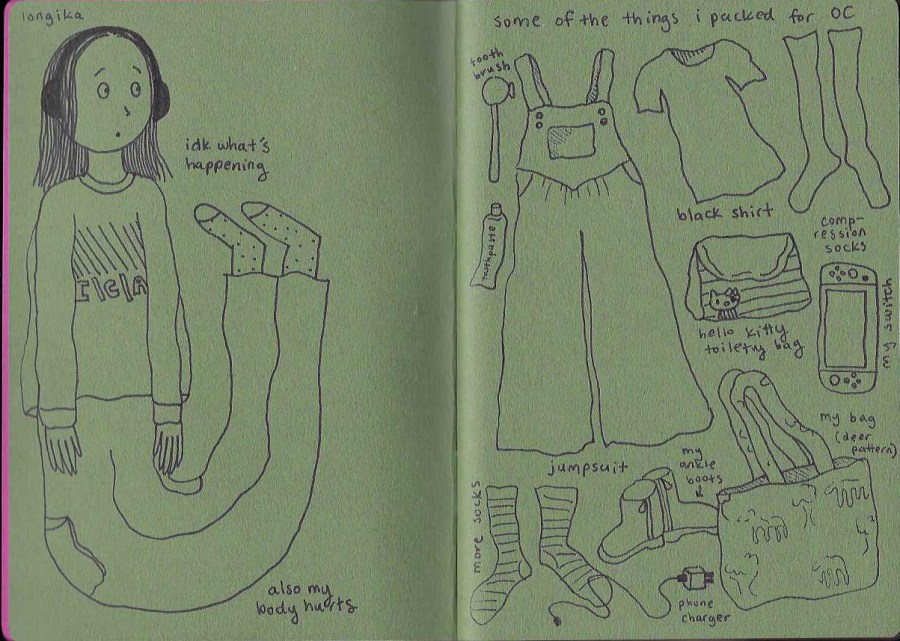 longika
idk what's
happening
I|C|A
also my
body hurts
some of the things i packed for OC
tooth
brush
toothpaste
black shirt
comp-
ression
socks
hello kitty
toiletry bag
my switch
jumpsuit
my
ankle
boots
my bag
(deer
pattern)
more socks
phone
charger